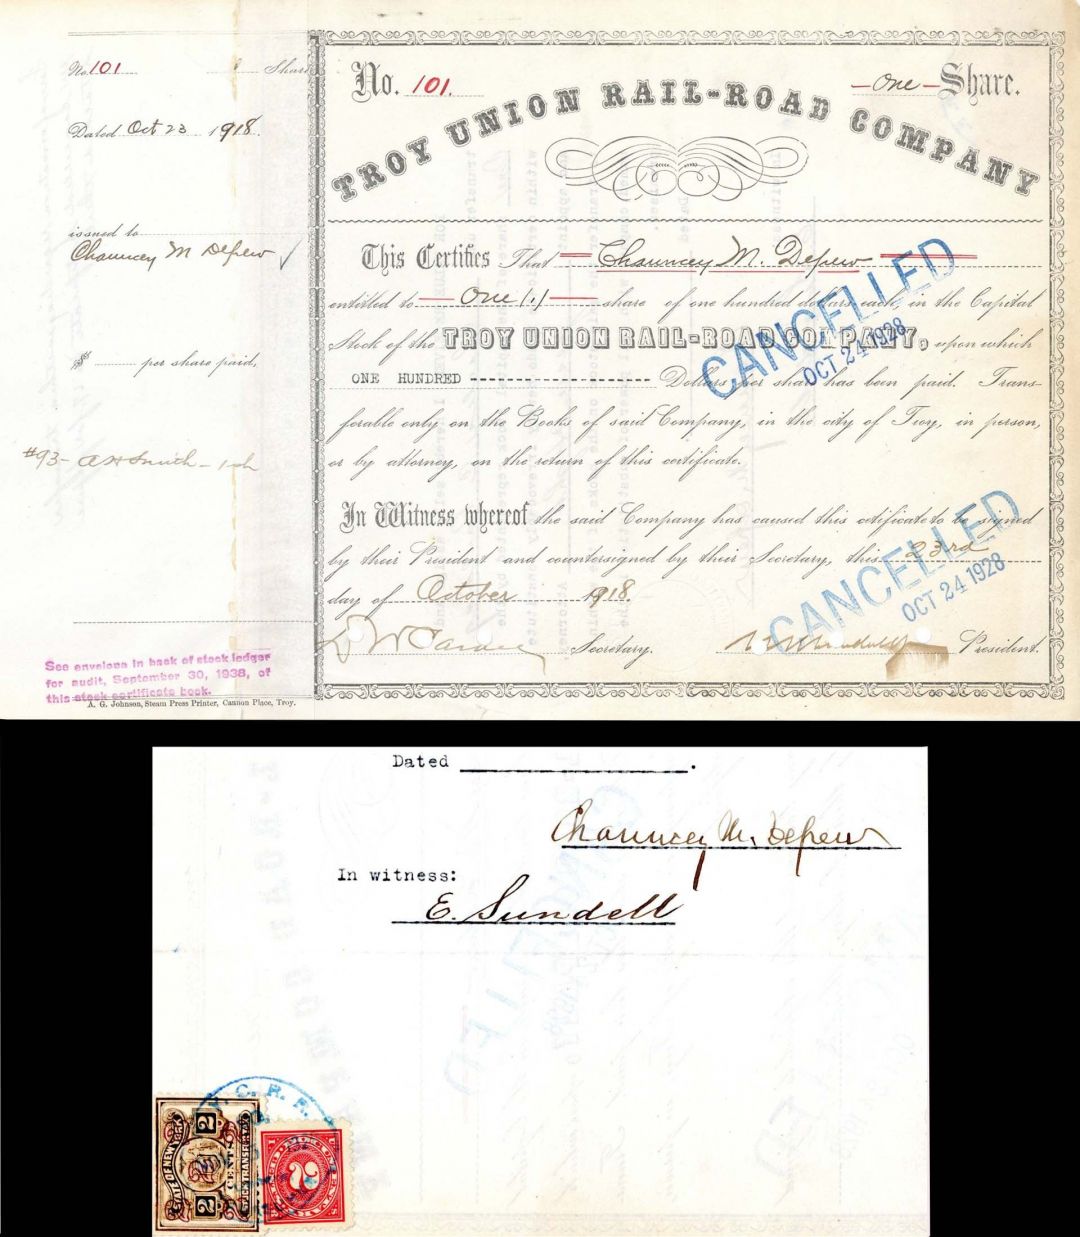 No. 101 Share
Dated Oct 23 1918.
issued to
Chauncey M Depew
$ per share paid,
#93- A H Smith - 1 sh
See envelope in back of stock ledger
for audit, September 30, 1938, of
this stock certificate book.
A. G. Johnson, Steam Press Printer, Cannon Place, Troy.
No. 101. One Share.
TROY UNION RAIL-ROAD COMPANY
This Certifies That Chauncey M. Depew
entitled to One (1) share of one hundred dollars each, in the Capital
Stock of the TROY UNION RAIL-ROAD COMPANY, upon which
ONE HUNDRED Dollars per share has been paid. Trans-
ferable only on the Books of said Company, in the city of Troy, in person,
or by attorney, on the return of this certificate.
In Witness whereof the said Company has caused this certificate to be signed
by their President and countersigned by their Secretary, this 23rd
day of October 1918.
Secretary. President.
CANCELLED
OCT 24 1928
CANCELLED
OCT 24 1928
Dated
Chauncey M. Depew
In witness:
E. Sundell
C. R. R.
STATE OF NEW YORK
2 2
2 CENTS
STOCK TRANSFER TAX
2